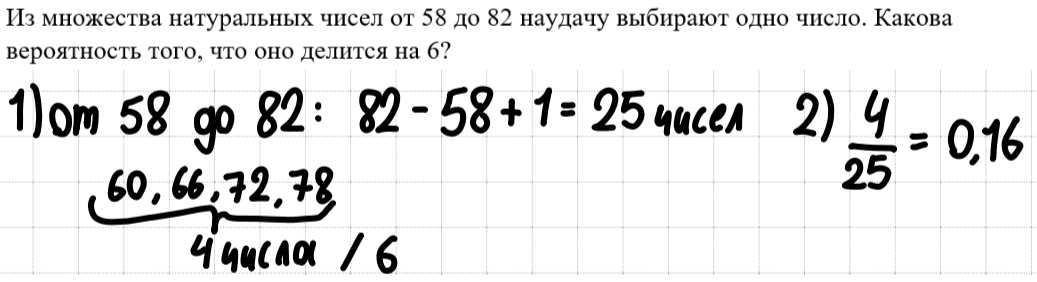 Из множества натуральных чисел от 58 до 82 наудачу выбирают одно число. Какова
вероятность того, что оно делится на 6?
1) от 58 до 82: 82 - 58 + 1 = 25 чисел
60, 66, 72, 78
4 числа / 6
2) 4/25 = 0,16